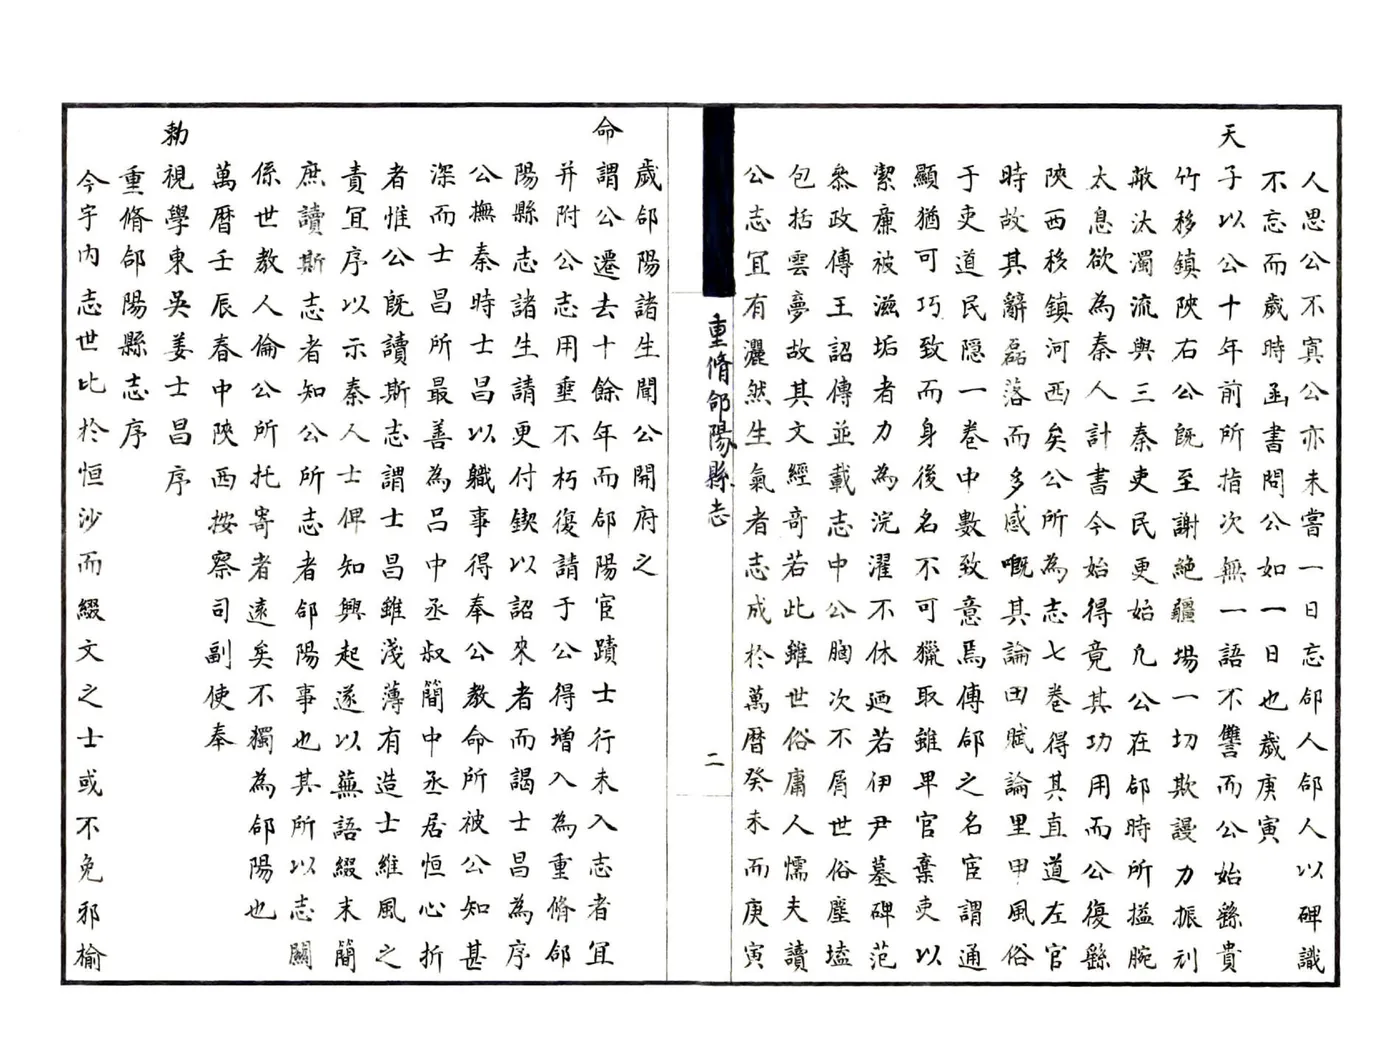 人思公不寘公亦未嘗一日忘郃人郃人以碑識
不忘而歲時函書問公如一日也歲庚寅
天子以公十年前所指次無一語不讐而公始繇貴
竹移鎮陝右公旣至謝絶疆場一切欺謾力振刓
敝汰濁流與三秦吏民更始凢公在郃時所搤腕
太息欲為秦人計書今始得竟其功用而公復繇
陝西移鎮河西矣公所為志七卷得其直道左官
時故其辭磊落而多感嘅其論田賦論里甲風俗
于吏道民隱一卷中數致意焉傳郃之名宦謂通
顯猶可巧致而身後名不可獵取雖卑官棄吏以
潔廉被滋垢者力為浣濯不休廼若伊尹墓碑范
叅政傳王詔傳並載志中公胸次不屑世俗塵壒
包括雲夢故其文經奇若此雖世俗庸人懦夫讀
公志冝有灑然生氣者志成於萬曆癸未而庚寅
重脩郃陽縣志
二
歲郃陽諸生聞公開府之
命謂公遷去十餘年而郃陽宦蹟士行未入志者冝
并附公志用垂不朽復請于公得增入為重脩郃
陽縣志諸生請更付鍥以詔來者而謁士昌為序
公撫秦時士昌以職事得奉公教命所被公知甚
深而士昌所最善為吕中丞叔簡中丞居恒心折
者惟公旣讀斯志謂士昌雖淺薄有造士維風之
責冝序以示秦人士俾知興起遂以蕪語綴末簡
庶讀斯志者知公所志者郃陽事也其所以志關
係世教人倫公所托寄者遠矣不獨為郃陽也
萬曆壬辰春中陝西按察司副使奉
勅視學東吳姜士昌序
重脩郃陽縣志序
今宇内志世比於恒沙而綴文之士或不免邪揄